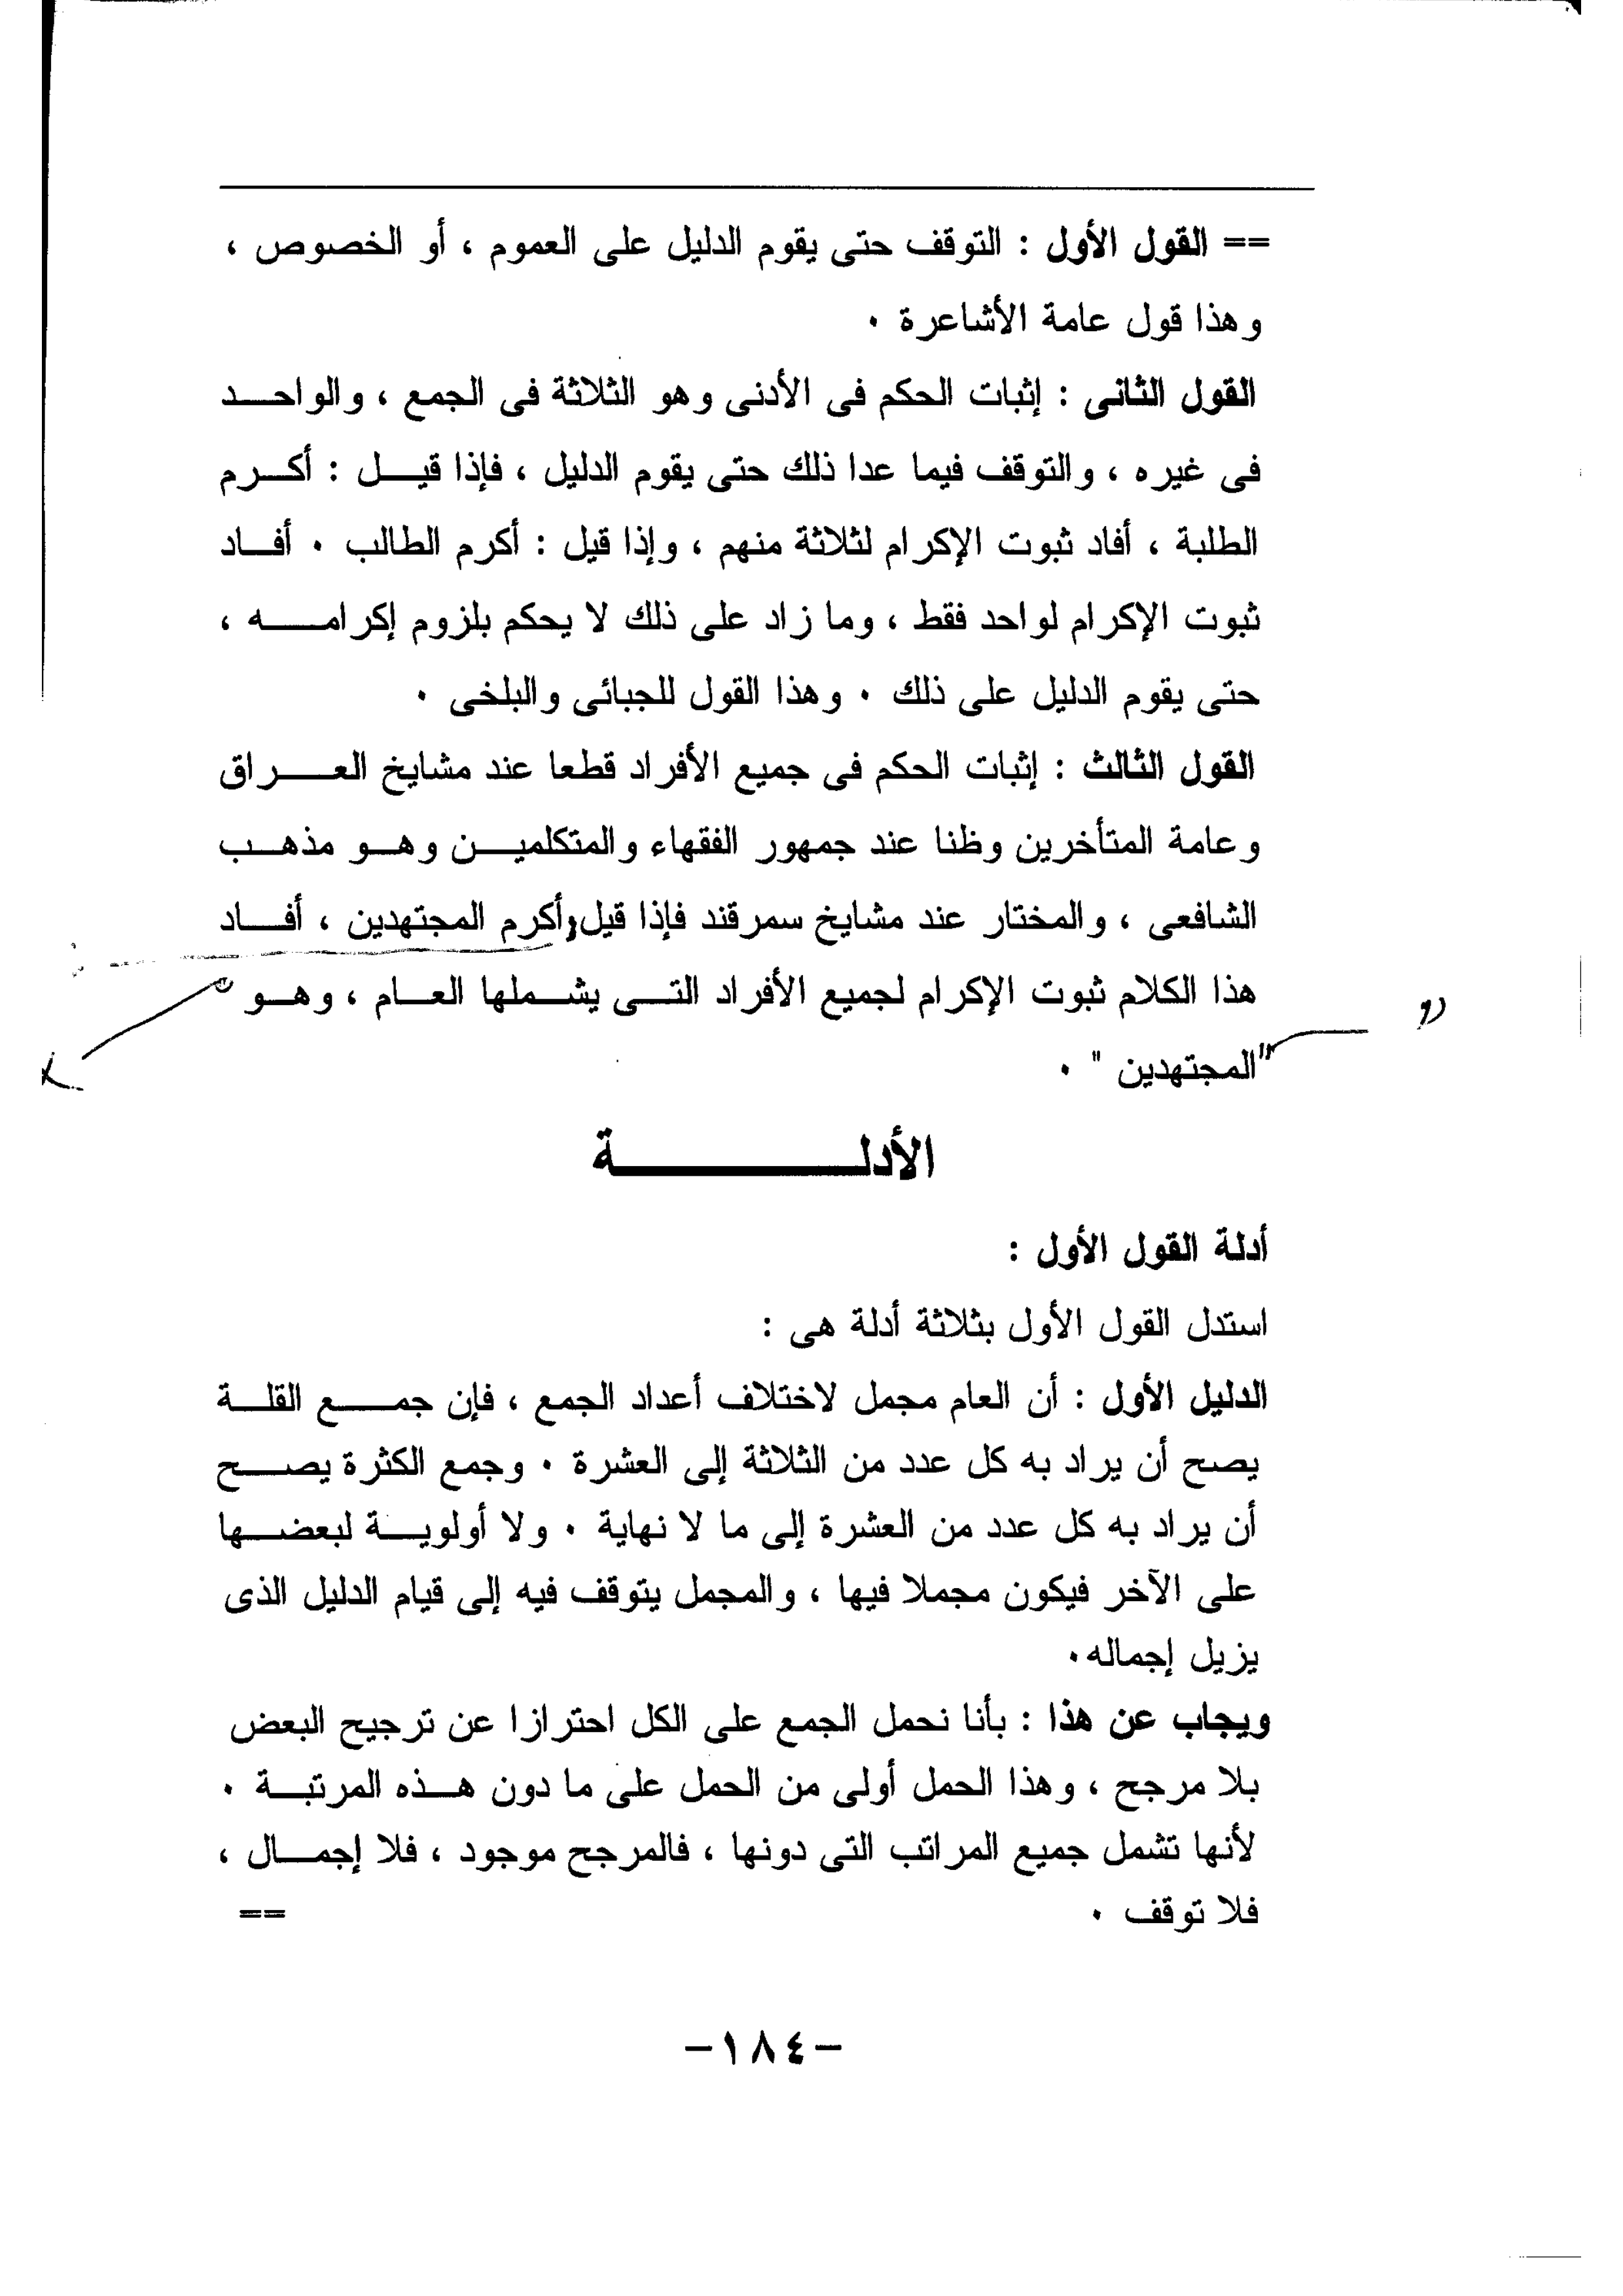 == القول الأول : التوقف حتى يقوم الدليل على العموم ، أو الخصوص ،
وهذا قول عامة الأشاعرة ٠
القول الثانى : إثبات الحكم فى الأدنى وهو الثلاثة فى الجمع ، والواحد
فى غيره ، والتوقف فيما عدا ذلك حتى يقوم الدليل ، فإذا قيل : أكرم
الطلبة ، أفاد ثبوت الإكرام لثلاثة منهم ، وإذا قيل : أكرم الطالب ٠ أفاد
ثبوت الإكرام لواحد فقط ، وما زاد على ذلك لا يحكم بلزوم إكرامه ،
حتى يقوم الدليل على ذلك ٠ وهذا القول للجبائى والبلخى ٠
القول الثالث : إثبات الحكم فى جميع الأفراد قطعا عند مشايخ العراق
وعامة المتأخرين وظنا عند جمهور الفقهاء والمتكلمين وهو مذهب
الشافعى ، والمختار عند مشايخ سمرقند فإذا قيل أكرم المجتهدين ، أفاد
هذا الكلام ثبوت الإكرام لجميع الأفراد التى يشملها العام ، وهو
"المجتهدين " ٠
الأدلة
أدلة القول الأول :
استدل القول الأول بثلاثة أدلة هى :
الدليل الأول : أن العام مجمل لاختلاف أعداد الجمع ، فإن جمع القلة
يصح أن يراد به كل عدد من الثلاثة إلى العشرة ٠ وجمع الكثرة يصح
أن يراد به كل عدد من العشرة إلى ما لا نهاية ٠ ولا أولوية لبعضها
على الآخر فيكون مجملا فيها ، والمجمل يتوقف فيه إلى قيام الدليل الذى
يزيل إجماله٠
ويجاب عن هذا : بأنا نحمل الجمع على الكل احترازا عن ترجيح البعض
بلا مرجح ، وهذا الحمل أولى من الحمل على ما دون هذه المرتبة ٠
لأنها تشمل جميع المراتب التى دونها ، فالمرجح موجود ، فلا إجمال ،
فلا توقف ٠ ==
-١٨٤-